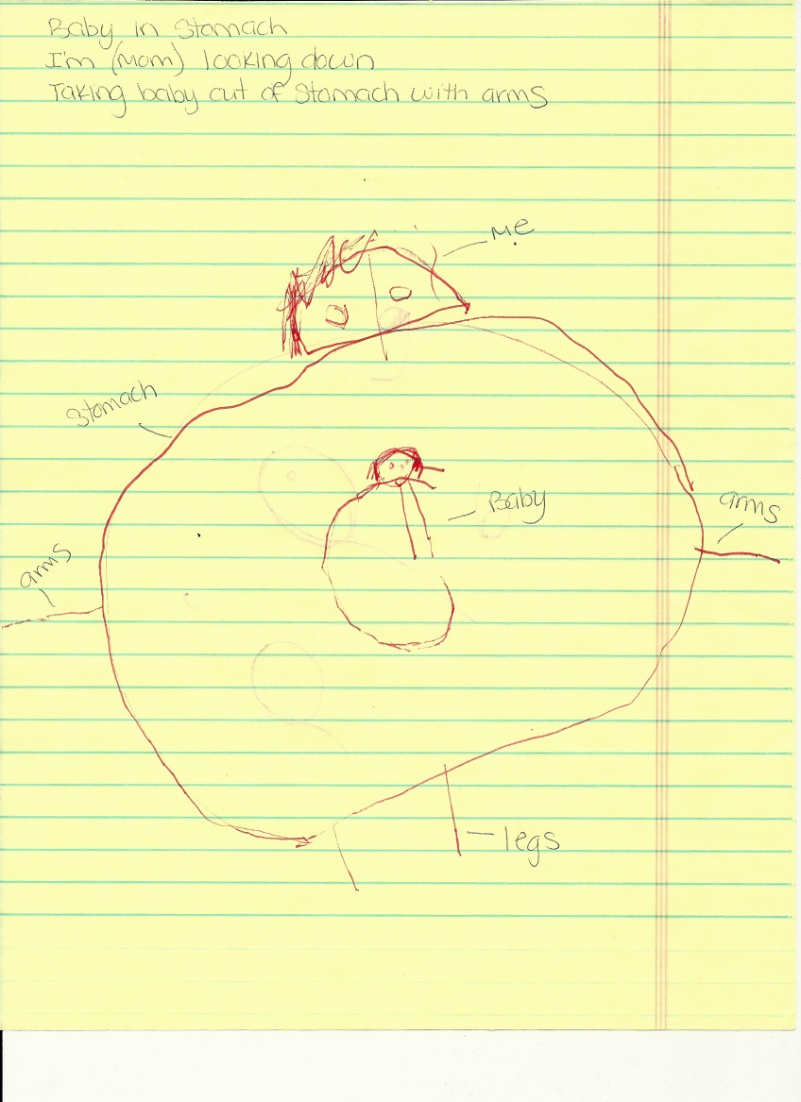 Baby in Stomach
I'm (Mom) looking down
Taking baby out of Stomach with arms
Me
Stomach
Baby
arms
arms
legs